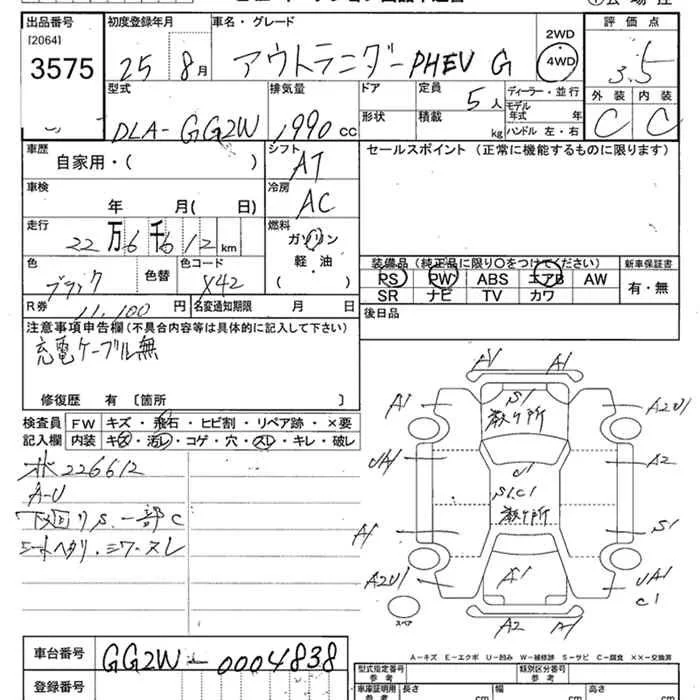 出品番号 初度登録年月 車名・グレード 2WD 評価点
[2064]
3575 25 8月 アウトランダーPHEV G 4WD 3.5
型式 排気量 ドア 定員 5人 ディーラー・並行 外装 内装
モデル
年式 年
DLA-GG2W 1990cc 形状 積載 kg ハンドル 左・右 C C
車歴 シフト セールスポイント (正常に機能するものに限ります)
自家用・( ) AT
車検 冷房
年 月( 日) AC
走行 燃料
22万6千612km ガソリン
軽・油
( )
色 色替 色コード 装備品 (純正品に限り〇をつけてください) 新車保証書
ブラック X42 PS PW ABS エアB AW 有・無
SR ナビ TV カワ
R券 11,100円 名変通知期限 月 日 後日品
注意事項申告欄(不具合内容等は具体的に記入して下さい)
充電ケーブル無
修復歴 有 〔箇所 〕
検査員 FW キズ・飛石・ヒビ割・リペア跡・×要
記入欄 内装 キズ・汚レ・コゲ・穴・スレ・キレ・破レ
226612
A-U
下廻りS.一部C
シートヘタリ・シワ・スレ
A1 A1
A1 S1 A2U1
散ヶ所
UA1 U1 A2
S1.C1
A1 散ヶ所 S1
A2U1 A1 UA1
C1
スペア
A2 A1
A−キズ E−エクボ U−凹み W−補修跡 S−サビ C−腐食 ××−交換済
車台番号 GG2W-0004838
型式指定番号 類別区分番号
参考 参考
登録番号 車庫証明用 長さ cm 幅 cm 高さ cm
参考